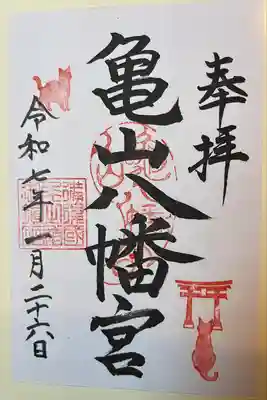 奉拝
亀山八幡宮
令和七年一月二十六日